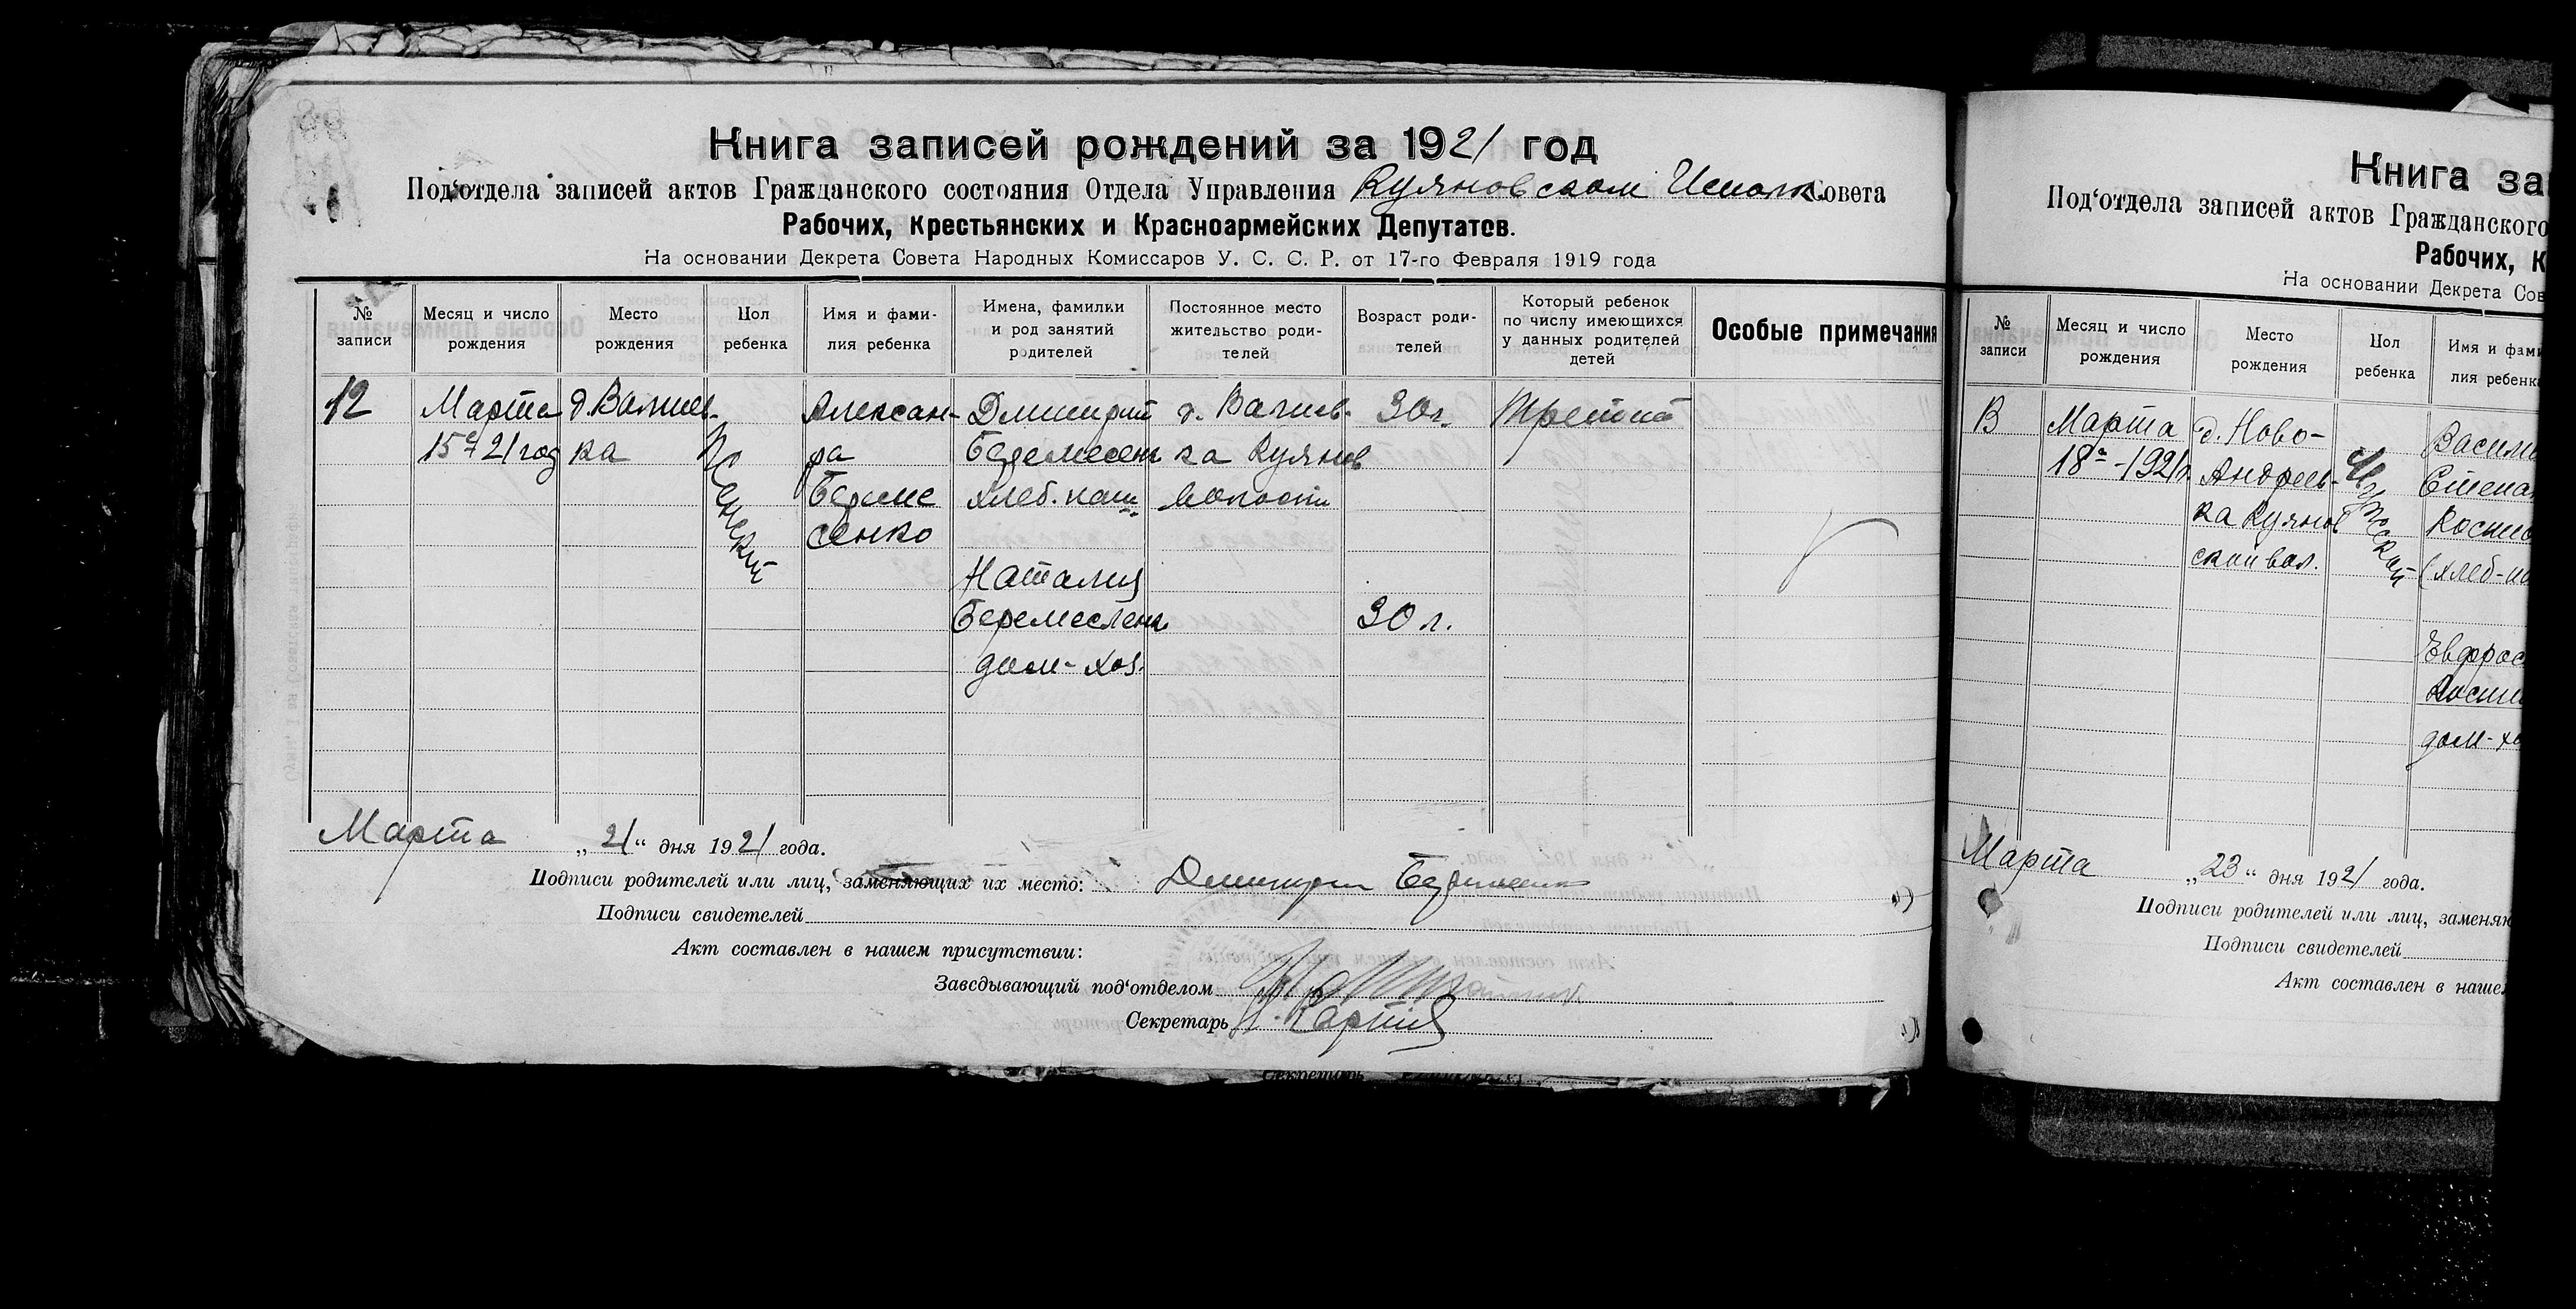 Книга записей рождений за 1921 год
Под‘отдела записей актов Гражданского состояния Отдела Управления Куяновском Исполк. Совета
Рабочих, Крестьянских и Красноармейских Депутатов.
На основании Декрета Совета Народных Комиссаров У. С. С. Р. от 17-го Февраля 1919 года
№ записи
Месяц и число рождения
Место рождения
Пол ребенка
Имя и фами-
лия ребенка
Имена, фамилии
и род занятий
родителей
Постоянное место
жительство роди-
телей
Возраст роди-
телей
Который ребенок
по числу имеющихся
у данных родителей
детей
Особые примечания
12
Марта
15 21 год
ка
Женский
Алексан-
ра
Береме
сенко
Дмитрий
хлеб. паш
Наталия
дом-хоз.
ка Куянов
волости
30 г.
30 л.
Третий
Марта „21“ дня 1921 года.
Подписи родителей или лиц, заменяющих их место: Дмитрий
Подписи свидетелей
Акт составлен в нашем присутствии:
Заведывающий под‘отделом
Секретарь
Секретарь
Книга за
Под‘отдела записей актов Гражданского
Рабочих, К
На основании Декрета Сов
№ записи
Месяц и число рождения
Место рождения
Пол ребенка
Имя и фами
лия ребенк
13
Марта
18 - 1921 г.
д. Ново-
Андреев-
ка Куянов
ской вол.
Мужской
Васили
Степа
(хлеб-па
Евфрос
дом-хо
Марта „23“ дня 1921 года.
Подписи родителей или лиц, заменяю
Подписи свидетелей
Акт составлен в наше